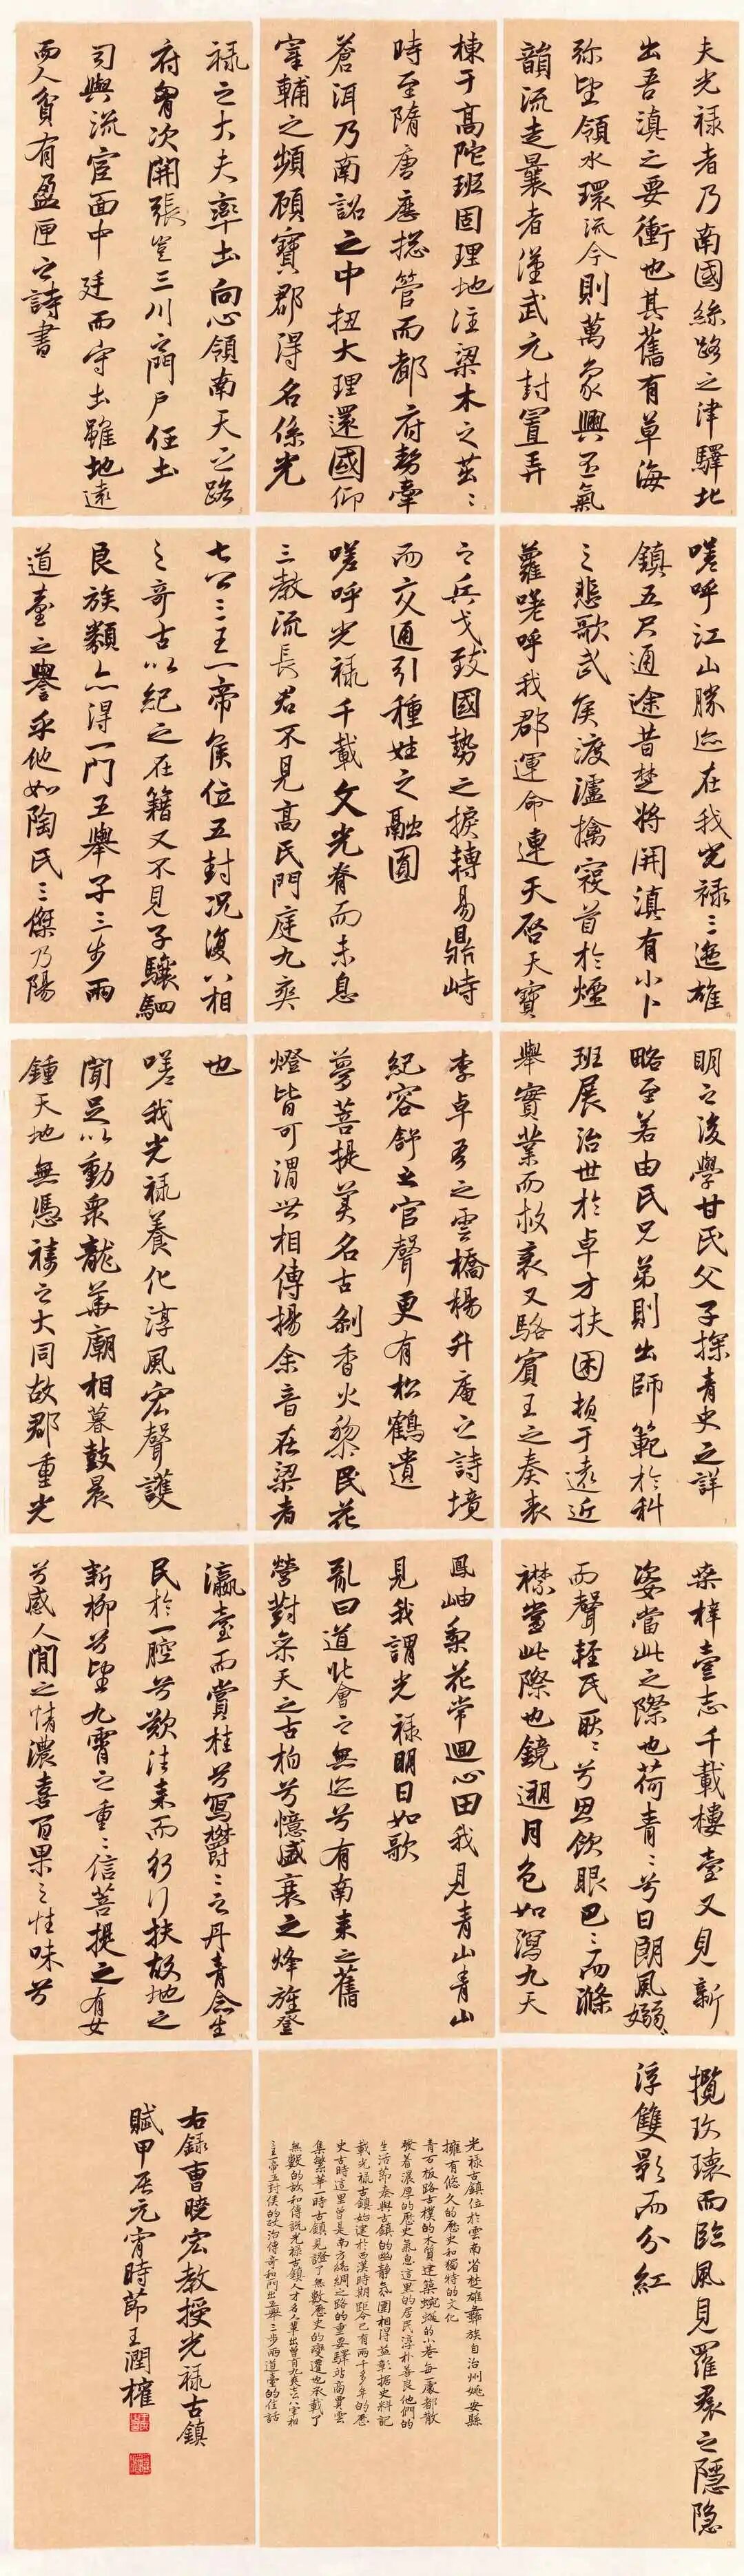 夫光禄者乃南國絲路之津驛北
出吾滇之要衝也其舊有草海
弥望領水環流今則萬象興至氣
韻流走曩者漢武元封置弄
棟于高陀班固理地注梁木之茁ミ
時至隋唐應摠管而都府勢牽
蒼洱乃南詔之中扭大理還國仰
宰輔之頻顧寶郡得名係光
禄之大夫率土向心領南天之路
府胷次開張豈三川之門户任土
司與流官面中廷而守土雖地遠
而人貧有盈匣之詩書
嗟呼江山勝迹在我光禄ミ迤雄
鎮五尺通途昔楚將開滇有小卜
之悲歌武侯渡瀘擒寇首於爐
蘿嗟呼我郡運命連天啓天寶
之兵戈致國勢之捩轉易鼎峙
而交通引種姓之融圓
嗟呼光禄千載文光脊而未息
三教流長君不見高氏門庭九爽
七公三王一帝侯位五封况復八相
之奇古以紀之在籍又不見子驤駟
良族類亦得一門五舉子三步兩
道臺之譽乎他如陶氏三傑乃陽
明之後學甘氏父子探青史之詳
略至若由氏兄弟則出師範於科
班展治世於卓才扶困頓于遠近
舉實業而救衰又駱賓王之奏表
李卓吾之雲橋楊升庵之詩境
紀容舒之官聲更有松鶴遺
夢菩提美名古刹香火黎民花
燈皆可謂世相傳揚余音在梁者
也
嗟我光禄養化淳風宏聲護
聞足以動衆龍華廟相暮鼓晨
鍾天地無憑禱之大同故郡重光
桑梓壹志千載樓臺又見新
姿當此之際也荷青ミ兮日朗風嫋
而聲輕民耿ミ兮思飲眼巴ミ而滌
襟當此際也鏡邀月色如瀉九天
鳳岫梨花常迴心田我見青山青山
見我謂光禄明日如歌
亂曰道此會之無迹兮有南來之舊
營對參天之古柏兮憶盛衰之烽旌登
瀛臺而賞桂兮寫欝ミ之丹青念生
民於一腔兮歎法來而躬行扶故地之
新柳兮望九霄之重ミ信菩提之有女
兮感人間之情濃喜百果之性味兮
攬玫瓌而臨風見羅裙之隱隐
浮雙影而分紅
光禄古鎮位於雲南省楚雄彝族自治州姚安縣
擁有悠久的歷史和獨特的文化
青石板路古樸的木質建築蜿蜒的小巷每一處都散
發着濃厚的歷史氣息這里的居民淳朴善良他們的
生活節奏與古鎮的幽静氛圍相得益彰據史料記
載光禄古鎮始建於西漢時期距今已有兩千多年的歷
史古時這里曾是南方絲綢之路的重要驛站商賈雲
集繁華一時古鎮見證了無數歷史的變遷也承載了
無數的故事和傳説光禄古鎮人才多人輩出曾有九爽七公八宰相
三王一帝五封侯的政治傳奇和一門出五舉三步兩道臺的佳話
右録曹曉宏教授光禄古鎮
賦甲辰元宵時節王潤權